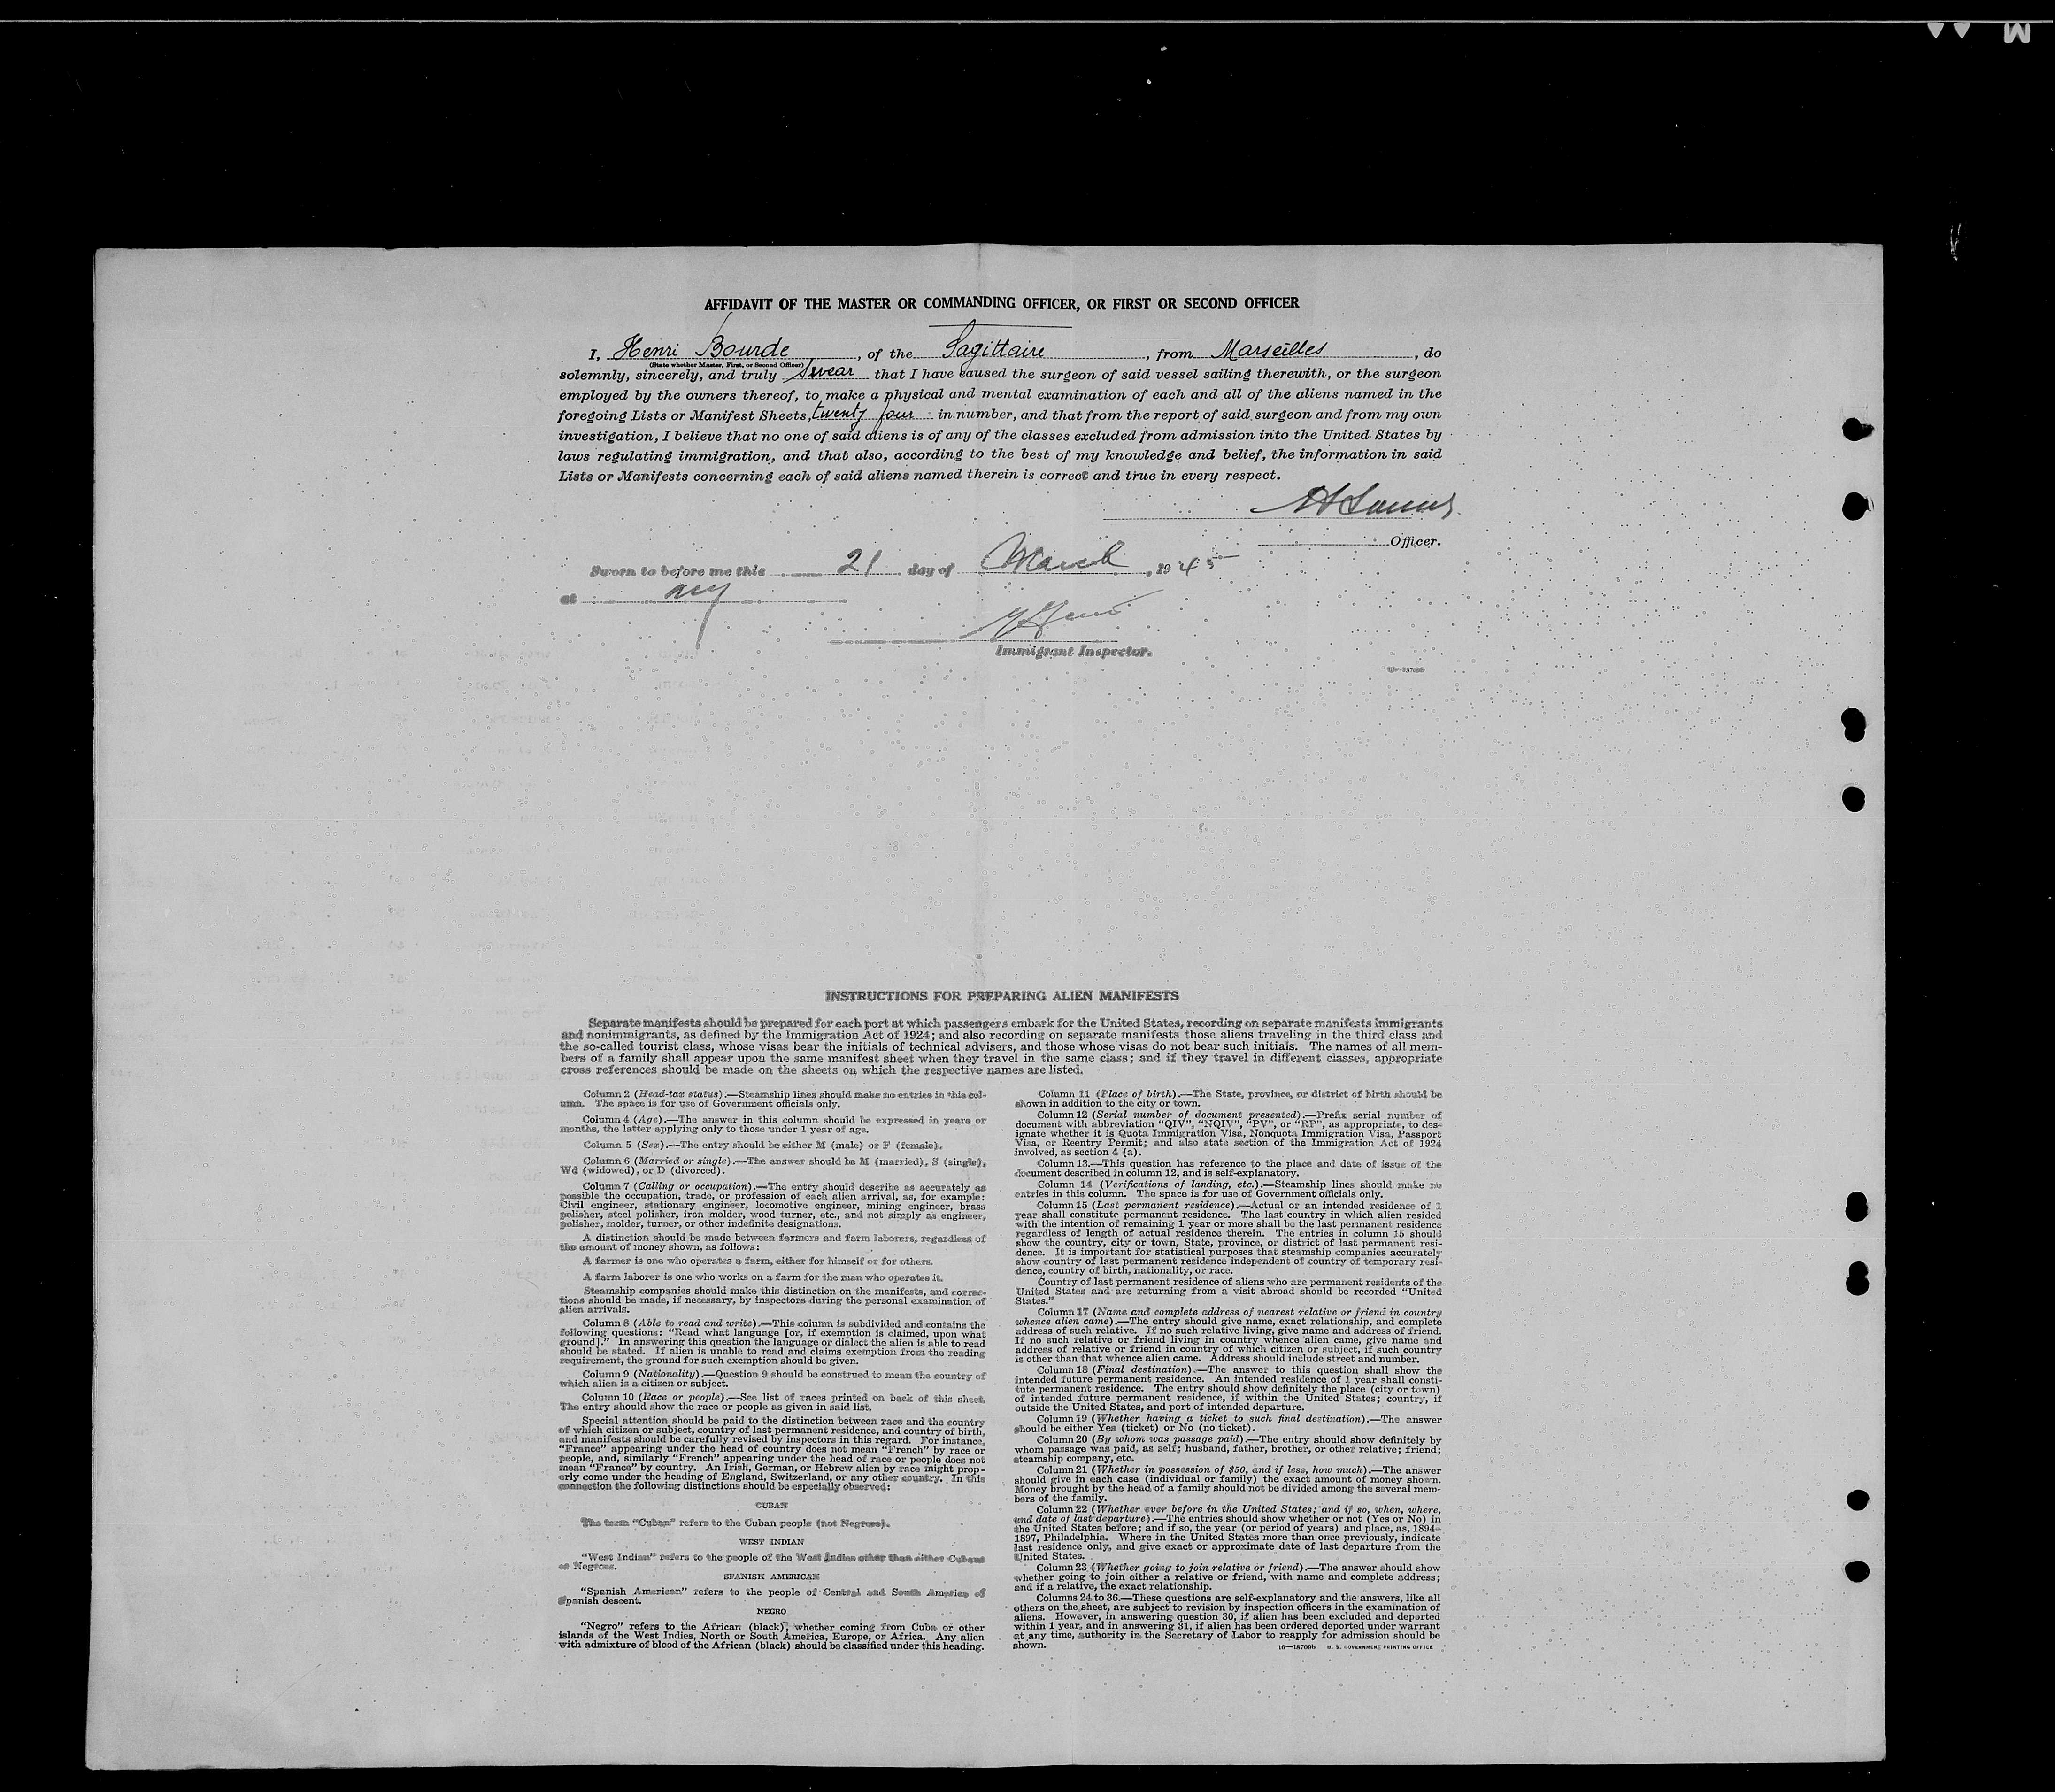 AFFIDAVIT OF THE MASTER OR COMMANDING OFFICER, OR FIRST OR SECOND OFFICER
I, Henri Bourde, of the Sagittaire, from Marseilles, do
(State whether Master, First, or Second Officer)
solemnly, sincerely, and truly swear that I have caused the surgeon of said vessel sailing therewith, or the surgeon
employed by the owners thereof, to make a physical and mental examination of each and all of the aliens named in the
foregoing Lists or Manifest Sheets, twenty four in number, and that from the report of said surgeon and from my own
investigation, I believe that no one of said aliens is of any of the classes excluded from admission into the United States by
laws regulating immigration, and that also, according to the best of my knowledge and belief, the information in said
Lists or Manifests concerning each of said aliens named therein is correct and true in every respect.
Officer.
Sworn to before me this 21 day of March, 1945
at ny
Immigrant Inspector.
INSTRUCTIONS FOR PREPARING ALIEN MANIFESTS
Separate manifests should be prepared for each port at which passengers embark for the United States, recording on separate manifests immigrants
and nonimmigrants, as defined by the Immigration Act of 1924; and also recording on separate manifests those aliens traveling in the third class and
the so-called tourist class, whose visas bear the initials of technical advisers, and those whose visas do not bear such initials. The names of all mem-
bers of a family shall appear upon the same manifest sheet when they travel in the same class; and if they travel in different classes, appropriate
cross references should be made on the sheets on which the respective names are listed.
Column 2 (Head-tax status).—Steamship lines should make no entries in this col-
umn. The space is for use of Government officials only.
Column 4 (Age).—The answer in this column should be expressed in years or
months, the latter applying only to those under 1 year of age.
Column 5 (Sex).—The entry should be either M (male) or F (female).
Column 6 (Married or single).—The answer should be M (married), S (single),
Wd (widowed), or D (divorced).
Column 7 (Calling or occupation).—The entry should describe as accurately as
possible the occupation, trade, or profession of each alien arrival, as, for example:
Civil engineer, stationary engineer, locomotive engineer, mining engineer, brass
polisher, steel polisher, iron molder, wood turner, etc., and not simply as engineer,
polisher, molder, turner, or other indefinite designations.
A distinction should be made between farmers and farm laborers, regardless of
the amount of money shown, as follows:
A farmer is one who operates a farm, either for himself or for others.
A farm laborer is one who works on a farm for the man who operates it.
Steamship companies should make this distinction on the manifests, and correc-
tions should be made, if necessary, by inspectors during the personal examination of
alien arrivals.
Column 8 (Able to read and write).—This column is subdivided and contains the
following questions: "Read what language [or, if exemption is claimed, upon what
ground]." In answering this question the language or dialect the alien is able to read
should be stated. If alien is unable to read and claims exemption from the reading
requirement, the ground for such exemption should be given.
Column 9 (Nationality).—Question 9 should be construed to mean the country of
which alien is a citizen or subject.
Column 10 (Race or people).—See list of races printed on back of this sheet.
The entry should show the race or people as given in said list.
Special attention should be paid to the distinction between race and the country
of which citizen or subject, country of last permanent residence, and country of birth,
and manifests should be carefully revised by inspectors in this regard. For instance,
"France" appearing under the head of country does not mean "French" by race or
people, and, similarly "French" appearing under the head of race or people does not
mean "France" by country. An Irish, German, or Hebrew alien by race might prop-
erly come under the heading of England, Switzerland, or any other country. In this
connection the following distinctions should be especially observed:
CUBAN
The term "Cuban" refers to the Cuban people (not Negroes).
WEST INDIAN
"West Indian" refers to the people of the West Indies other than either Cubans
or Negroes.
SPANISH AMERICAN
"Spanish American" refers to the people of Central and South America of
Spanish descent.
NEGRO
"Negro" refers to the African (black), whether coming from Cuba or other
islands of the West Indies, North or South America, Europe, or Africa. Any alien
with admixture of blood of the African (black) should be classified under this heading.
Column 11 (Place of birth).—The State, province, or district of birth should be
shown in addition to the city or town.
Column 12 (Serial number of document presented).—Prefix serial number of
document with abbreviation "QIV", "NQIV", "PV", or "RP", as appropriate, to des-
ignate whether it is Quota Immigration Visa, Nonquota Immigration Visa, Passport
Visa, or Reentry Permit; and also state section of the Immigration Act of 1924
involved, as section 4 (a).
Column 13.—This question has reference to the place and date of issue of the
document described in column 12, and is self-explanatory.
Column 14 (Verifications of landing, etc.).—Steamship lines should make no
entries in this column. The space is for use of Government officials only.
Column 15 (Last permanent residence).—Actual or an intended residence of 1
year shall constitute permanent residence. The last country in which alien resided
with the intention of remaining 1 year or more shall be the last permanent residence
regardless of length of actual residence therein. The entries in column 15 should
show the country, city or town, State, province, or district of last permanent resi-
dence. It is important for statistical purposes that steamship companies accurately
show country of last permanent residence independent of country of temporary resi-
dence, country of birth, nationality, or race.
Country of last permanent residence of aliens who are permanent residents of the
United States and are returning from a visit abroad should be recorded "United
States."
Column 17 (Name and complete address of nearest relative or friend in country
whence alien came).—The entry should give name, exact relationship, and complete
address of such relative. If no such relative living, give name and address of friend.
If no such relative or friend living in country whence alien came, give name and
address of relative or friend in country of which citizen or subject, if such country
is other than that whence alien came. Address should include street and number.
Column 18 (Final destination).—The answer to this question shall show the
intended future permanent residence. An intended residence of 1 year shall consti-
tute permanent residence. The entry should show definitely the place (city or town)
of intended future permanent residence, if within the United States; country, if
outside the United States, and port of intended departure.
Column 19 (Whether having a ticket to such final destination).—The answer
should be either Yes (ticket) or No (no ticket).
Column 20 (By whom was passage paid).—The entry should show definitely by
whom passage was paid, as self; husband, father, brother, or other relative; friend;
steamship company, etc.
Column 21 (Whether in possession of $50, and if less, how much).—The answer
should give in each case (individual or family) the exact amount of money shown.
Money brought by the head of a family should not be divided among the several mem-
bers of the family.
Column 22 (Whether ever before in the United States; and if so, when, where,
and date of last departure).—The entries should show whether or not (Yes or No) in
the United States before; and if so, the year (or period of years) and place, as, 1894-
1897, Philadelphia. Where in the United States more than once previously, indicate
last residence only, and give exact or approximate date of last departure from the
United States.
Column 23 (Whether going to join relative or friend).—The answer should show
whether going to join either a relative or friend, with name and complete address;
and if a relative, the exact relationship.
Columns 24 to 36.—These questions are self-explanatory and the answers, like all
others on the sheet, are subject to revision by inspection officers in the examination of
aliens. However, in answering question 30, if alien has been excluded and deported
within 1 year, and in answering 31, if alien has been ordered deported under warrant
at any time, authority in the Secretary of Labor to reapply for admission should be
shown.
16—18700b U. S. GOVERNMENT PRINTING OFFICE